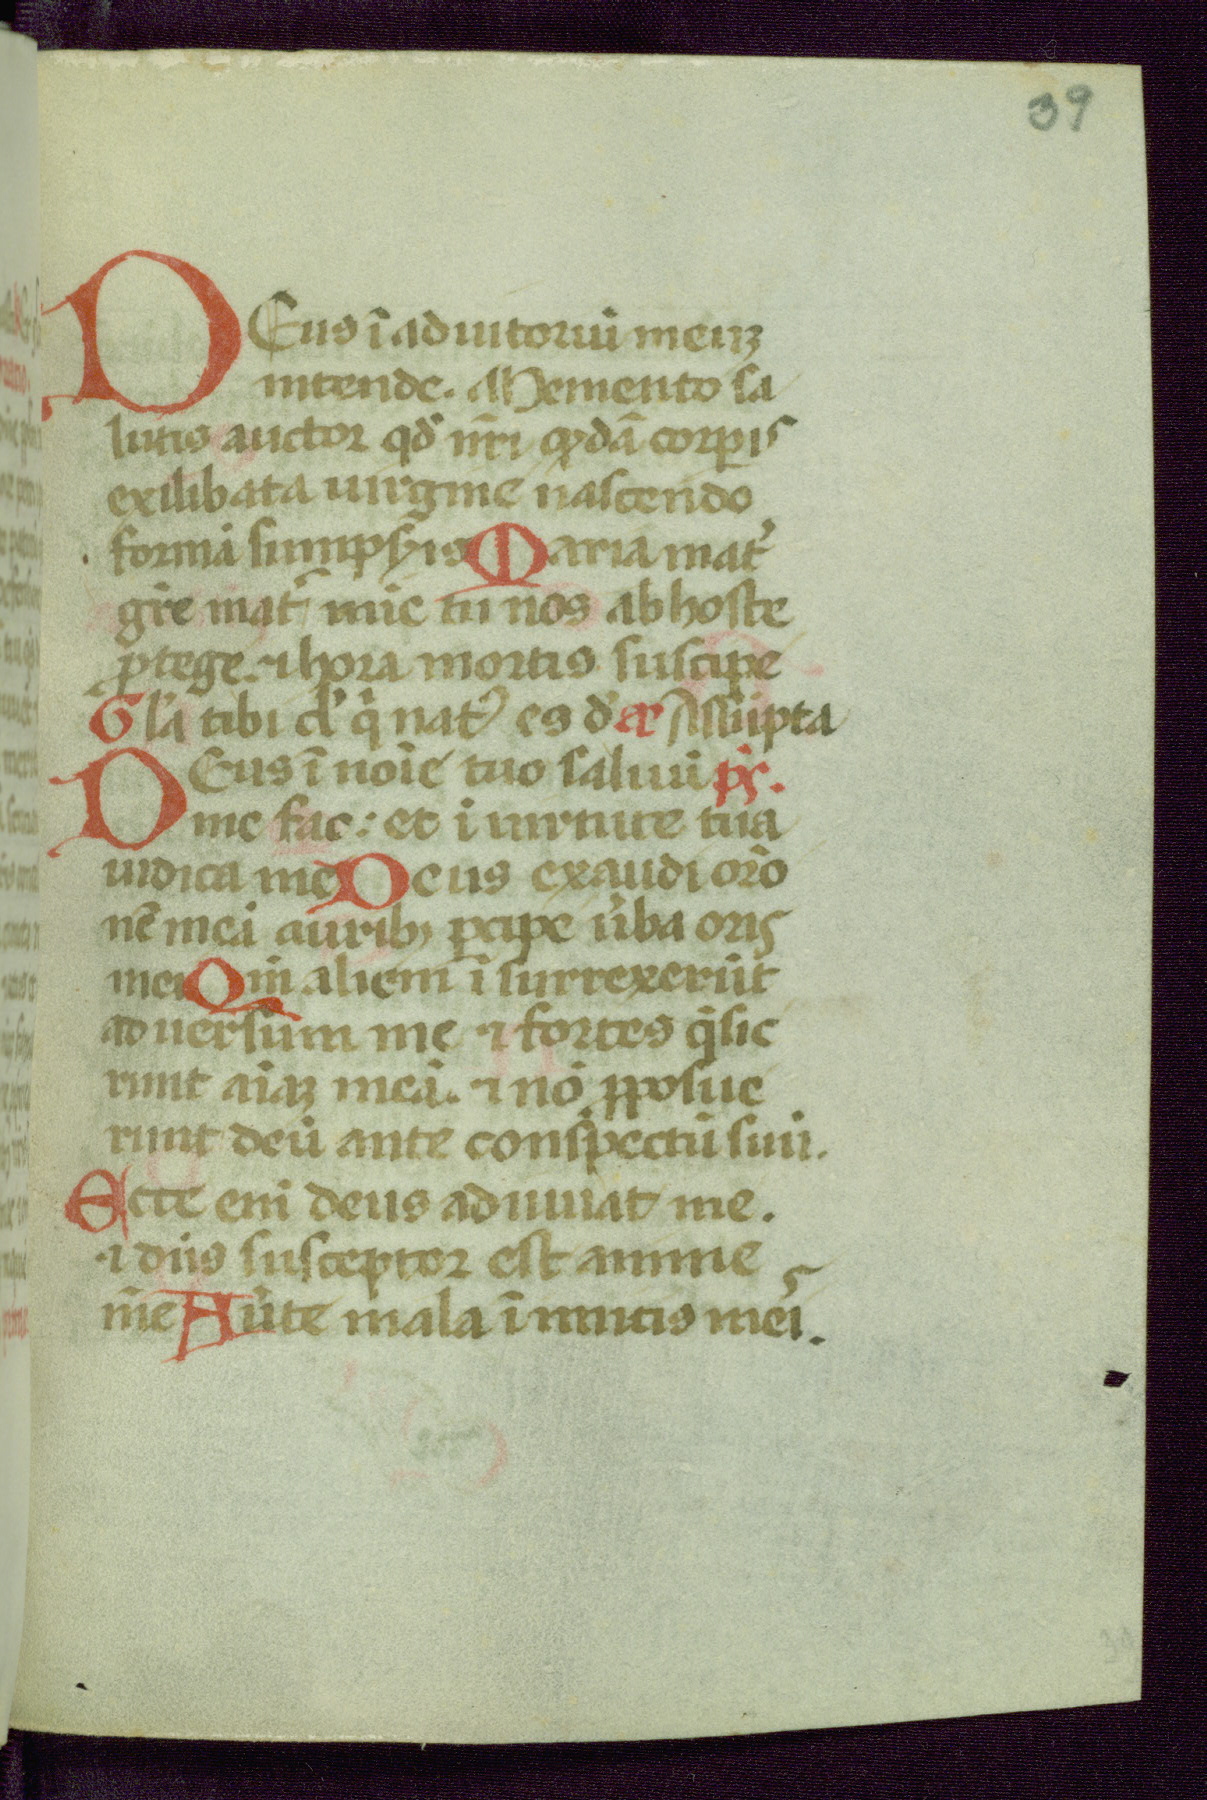 39
DEus ī adiutoriū meuȝ
intende. Memento sa
lutis auctor qd̕ nr̄i qͦdā corpis
ex ilibata uirgine nascendo
formā sumpsȳis Maria mat̕
gr̄e mat̕ mīe tu nos ab hoste
ꝓtege. ⁊ hora mortis suscipe
Gl̕a tibi dn̕ q̄ nat̕ es d̕ ār Assūpta
DEus ī noīe tuo saluū pͬs.
me fac: et ī uirtute tua
iudica me Deus exaudi or̄o
nē meā aurib; ꝑcipe ūba oris
mei Qm̄ alieni īsurrexerūt
aduersum me ⁊ fortes q̄sie
runt aīaȝ meā. ⁊ nō ꝓposue
runt deū ante conspectū suū.
Ecce eni deus adiuuat me.
⁊ dn̄s susceptor est anime
m̄e Aūte mala īimicis meis.